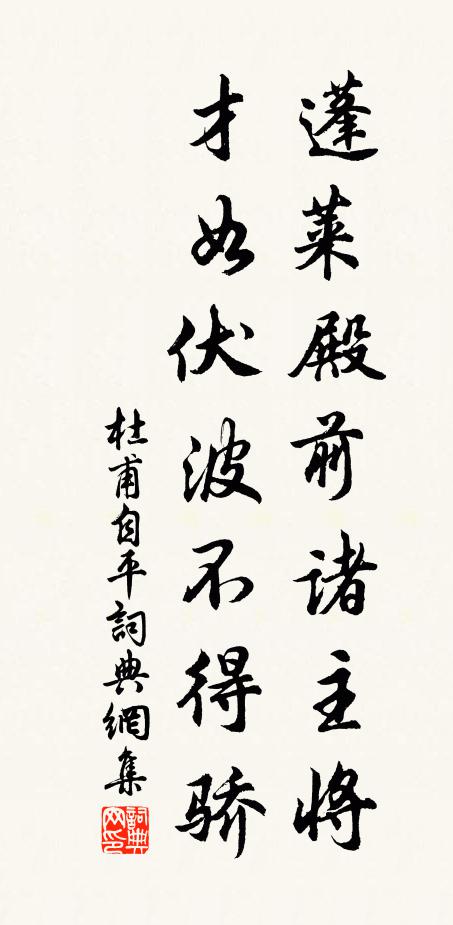 蓬莱殿前诸主将
才如伏波不得骄
杜甫自平詞典網集
詞典网印